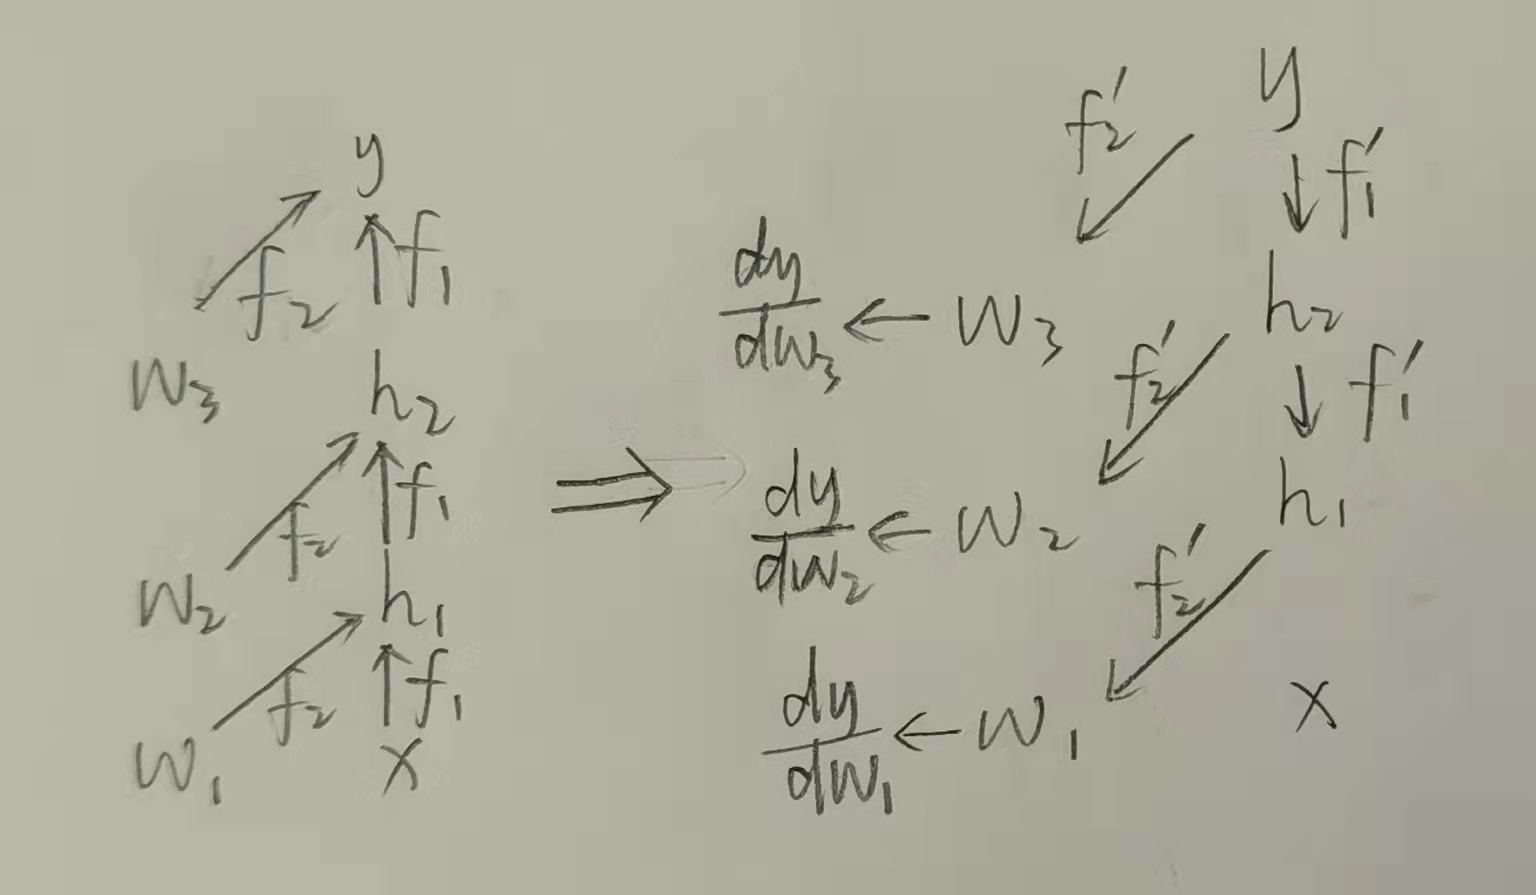 y
f₂ f₁
W₃ h₂
f₂ f₁
W₂ h₁
f₂ f₁
W₁ x
⇒
y
f₂′ f₁′
dy/dw₃ ← W₃ h₂
f₂′ f₁′
dy/dw₂ ← W₂ h₁
f₂′
dy/dw₁ ← W₁ x